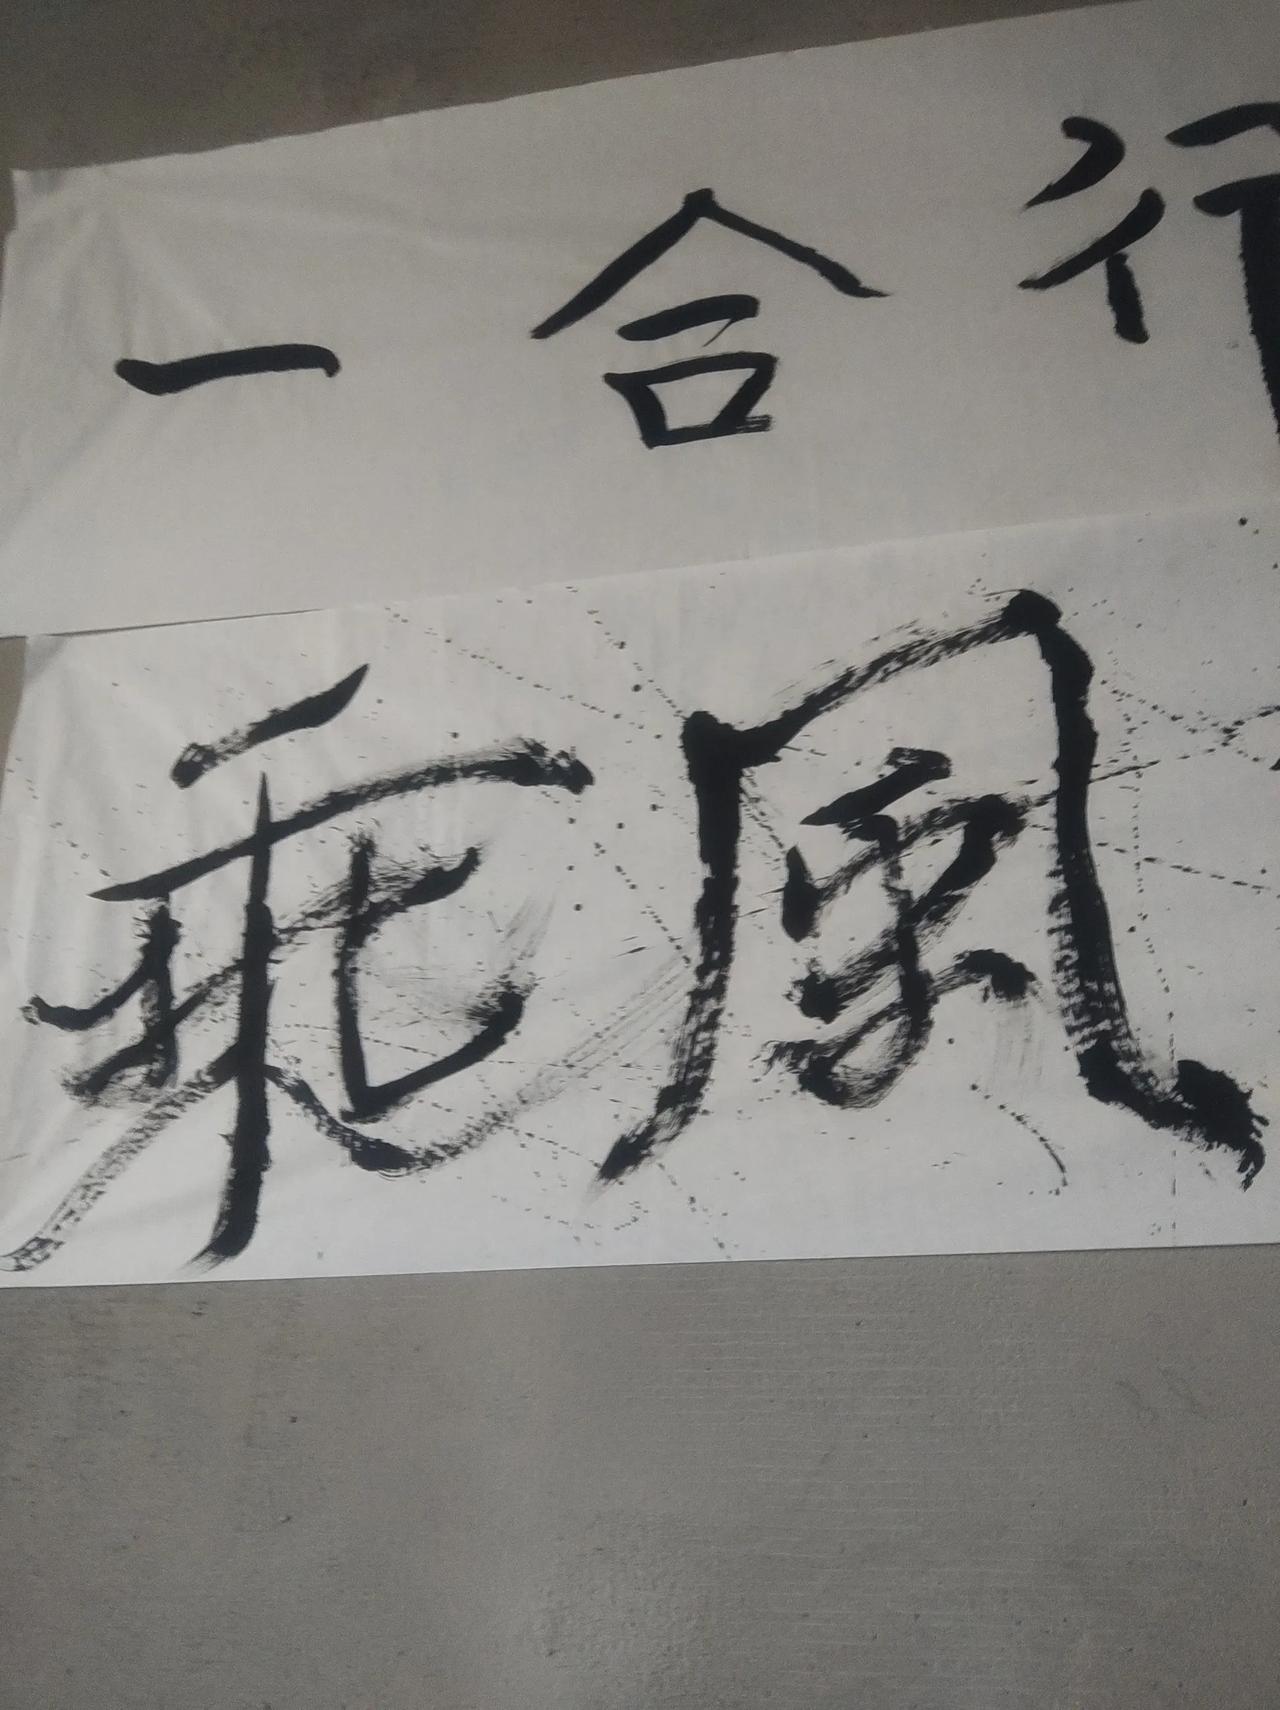 一合行
乘風